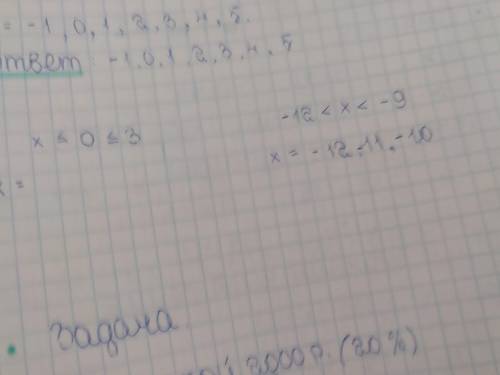 = -1, 0, 1, 2, 3, 4, 5.
твет: -1, 0, 1, 2, 3, 4, 5
x ≤ 0 ≤ 3
-12 < x < -9
x = -12, -11, -10
x =
Задача
2000 р. (20%)